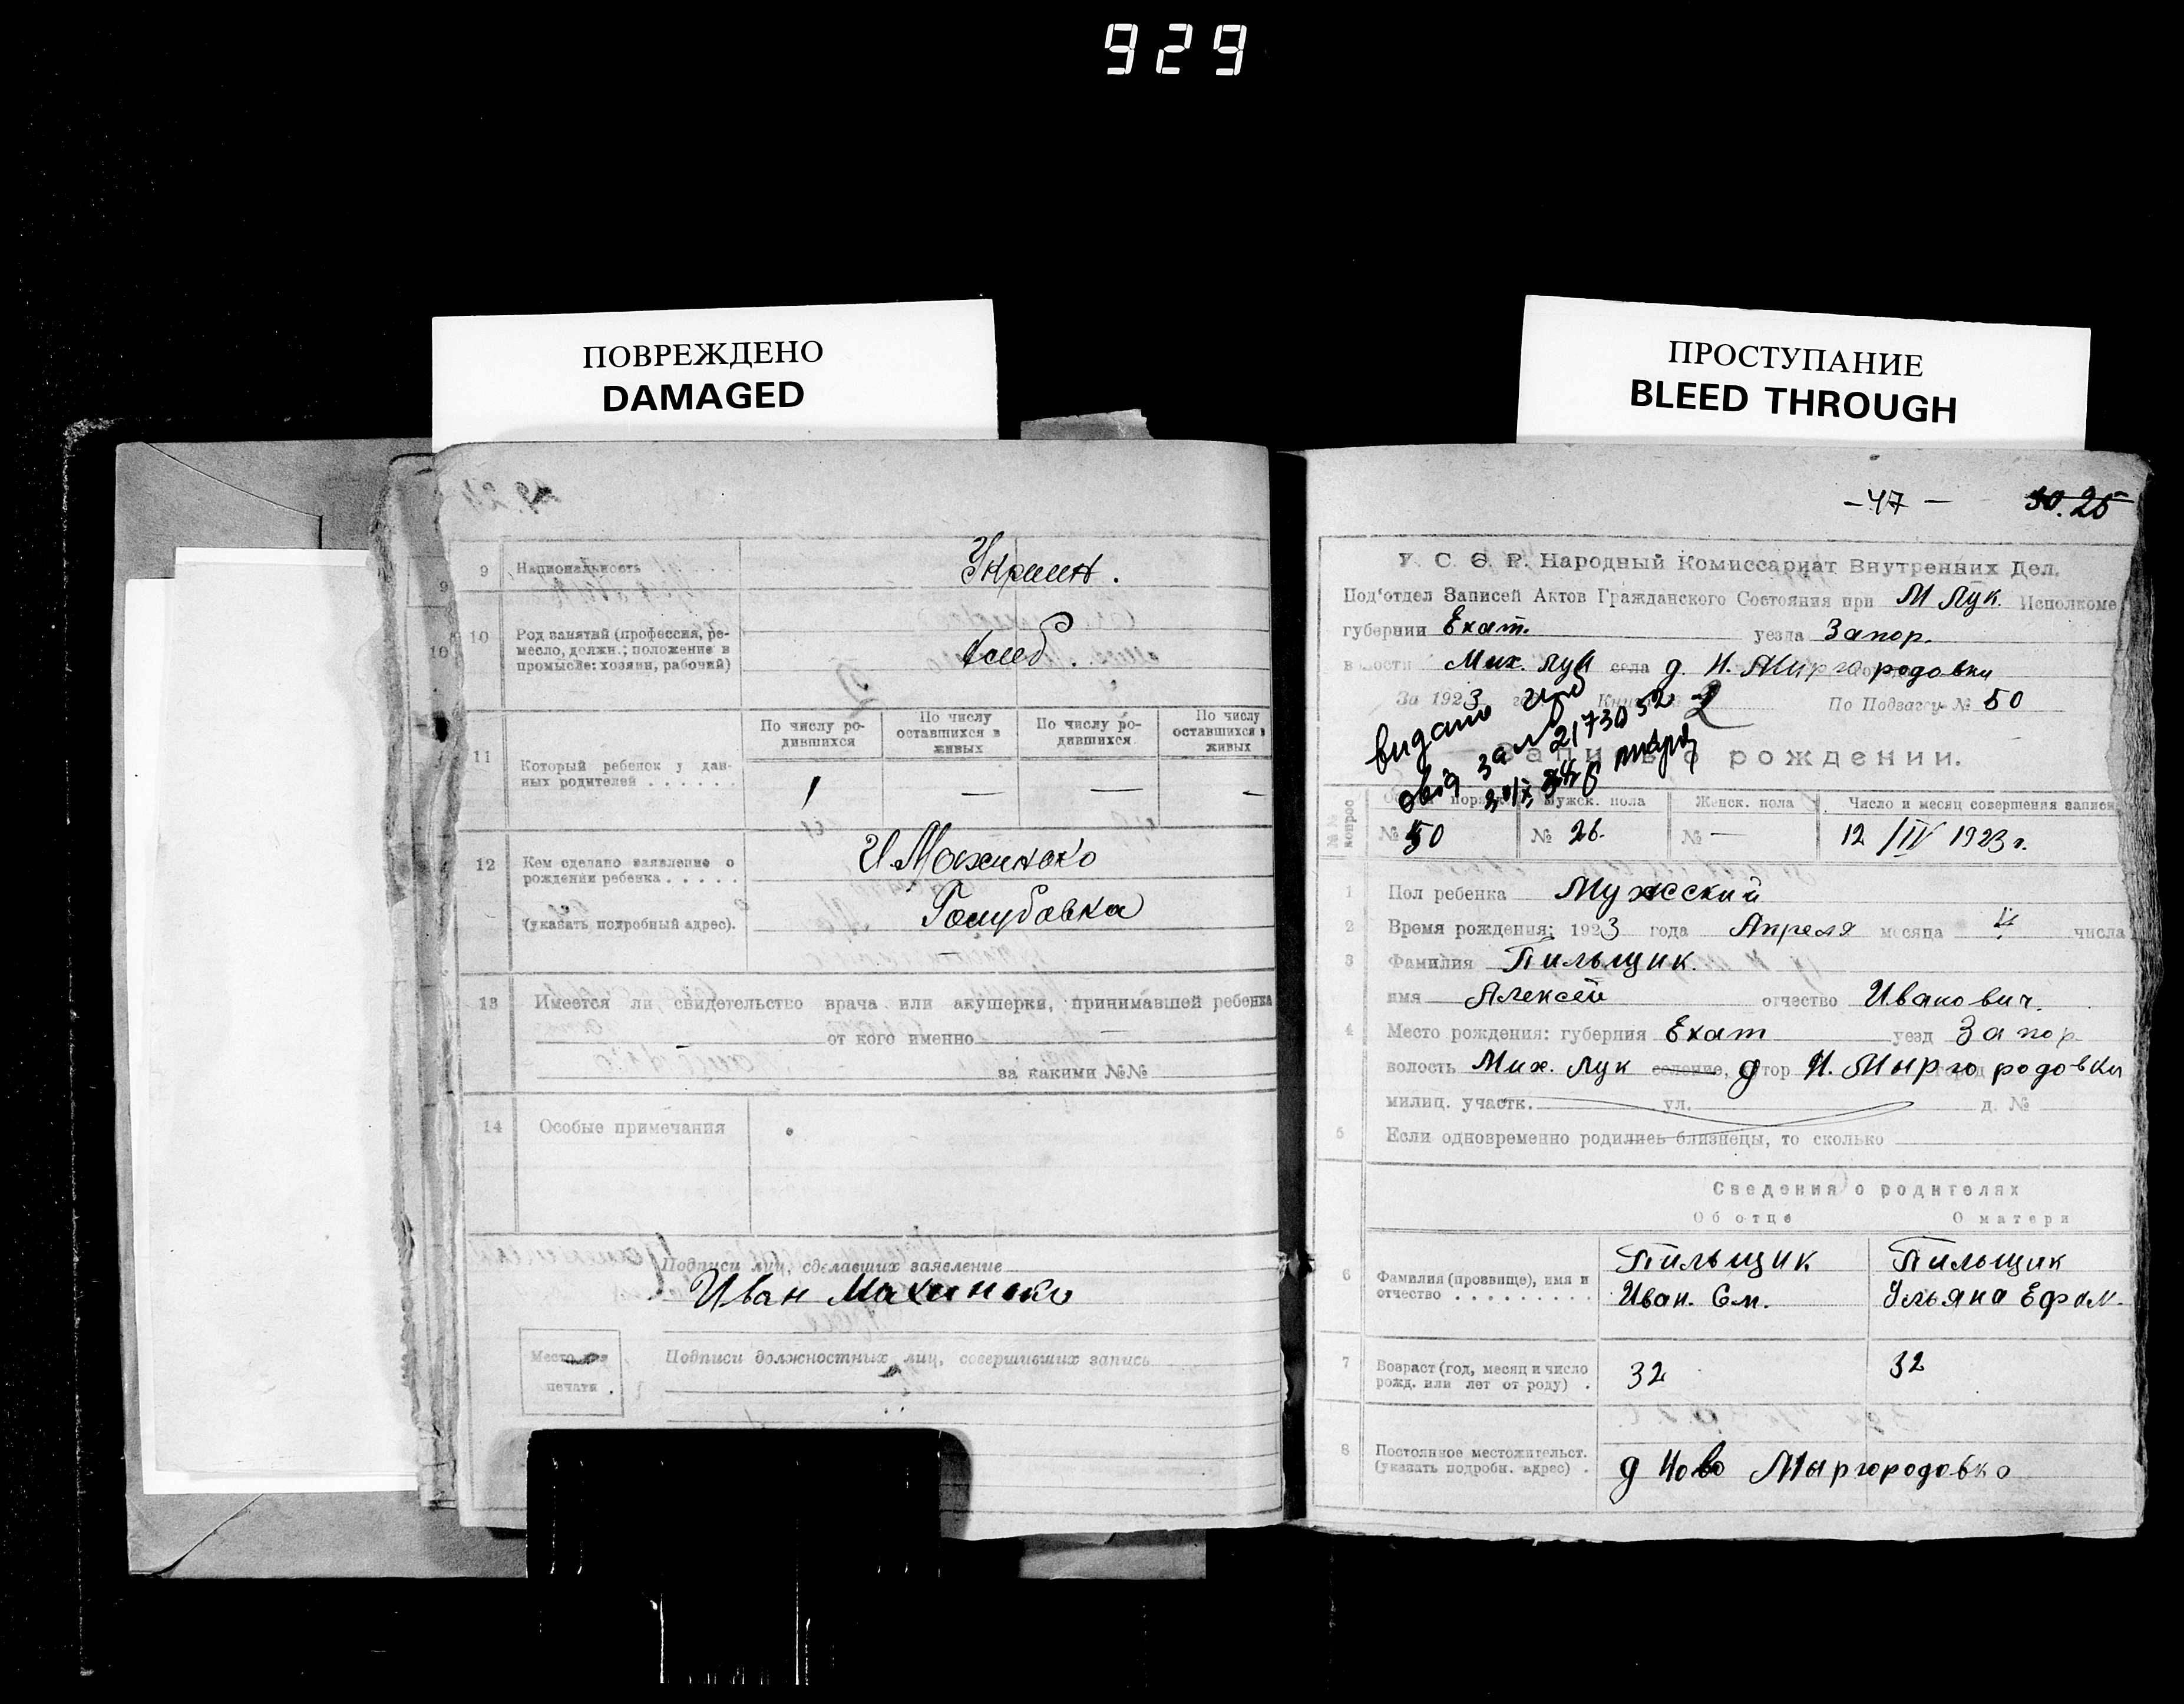 929
ПОВРЕЖДЕНО
DAMAGED
ПРОСТУПАНИЕ
BLEED THROUGH
9 Национальность Украин.
10 Род занятий (профессия, ре-
месло, должн.; положение в
промысле: хозяин, рабочий)
хлеб.
11 Который ребенок у дан-
ных родителей . . . . . .
По числу ро-
дившихся
По числу
оставшихся в
живых
По числу ро-
дившихся
По числу
оставшихся в
живых
1 — — —
12 Кем сделано заявление о
рождении ребенка . . . . .
(указать подробный адрес).
И Махинько
Голубовка
13 Имеется ли свидетельство врача или акушерки, принимавшей ребенка
от кого именно —
за какими №№
14 Особые примечания
Подписи лиц, сделавших заявление
Иван Махинько
Место для
печати.
Подписи должностных лиц, совершивших запись
-47- 50. 25
У. С. С. Р. Народный Комиссариат Внутренних Дел.
Под'отдел Записей Актов Гражданского Состояния при М Лук. Исполкоме
губернии Екат. уезда Запор.
волости Мих. Лук села д. Н. Миргородовки
За 1923 По Подзагсу № 50
видано
2173052
о рождении.
Мужск. пола Женск. пола Число и месяц совершения записи
№ 50 № 26. № — 12/IV 1923 г.
1 Пол ребенка Мужсский
2 Время рождения: 1923 года Апреля месяца 4 числа
3 Фамилия Пильщик.
имя Алексей отчество Иванович.
4 Место рождения: губерния Екат уезд Запор
волость Мих. Лук селение, д Н. Мыргородовки
милиц. участк. ул. д. №
5 Если одновременно родились близнецы, то сколько
Сведения о родителях
Об отце О матери
6 Фамилия (прозвище), имя и
отчество . . . . . . . . .
Пильщик
Иван. Сем.
Пильщик
Ульяна Ефим.
7 Возраст (год, месяц и число
рожд. или лет от роду) .
32 32
8 Постоянное местожительст.
(указать подробн. адрес) .
д Ново Мыргородовка